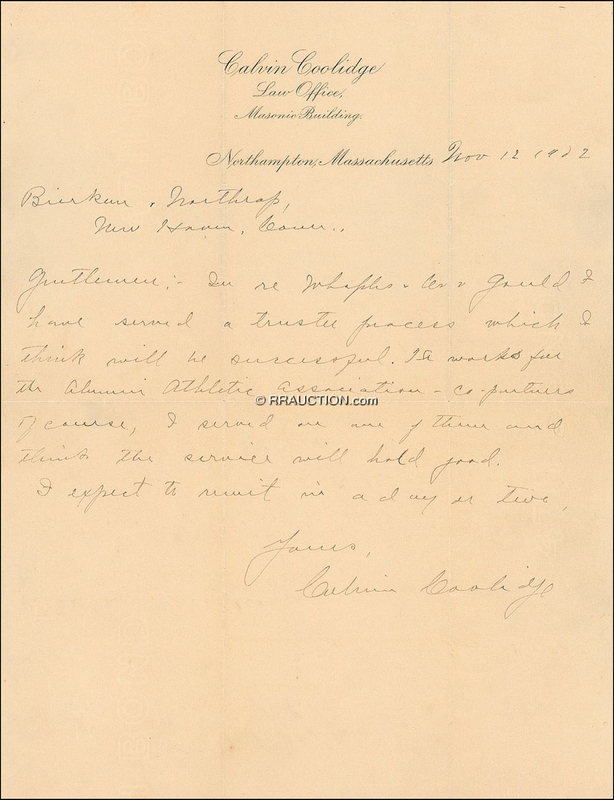 Calvin Coolidge
Law Office,
Masonic Building.
Northampton, Massachusetts Nov 12 1902
Northrop,
New Haven, Conn.,
Gentlemen:- In re Gould I
have served a trustee process which I
think will be successful. He works for
the Alumni Athletic Association - co-partners
of course, I served on one of them and
think the service will hold good.
I expect to remit in a day or two,
Yours,
Calvin Coolidge
© RRAUCTION.com